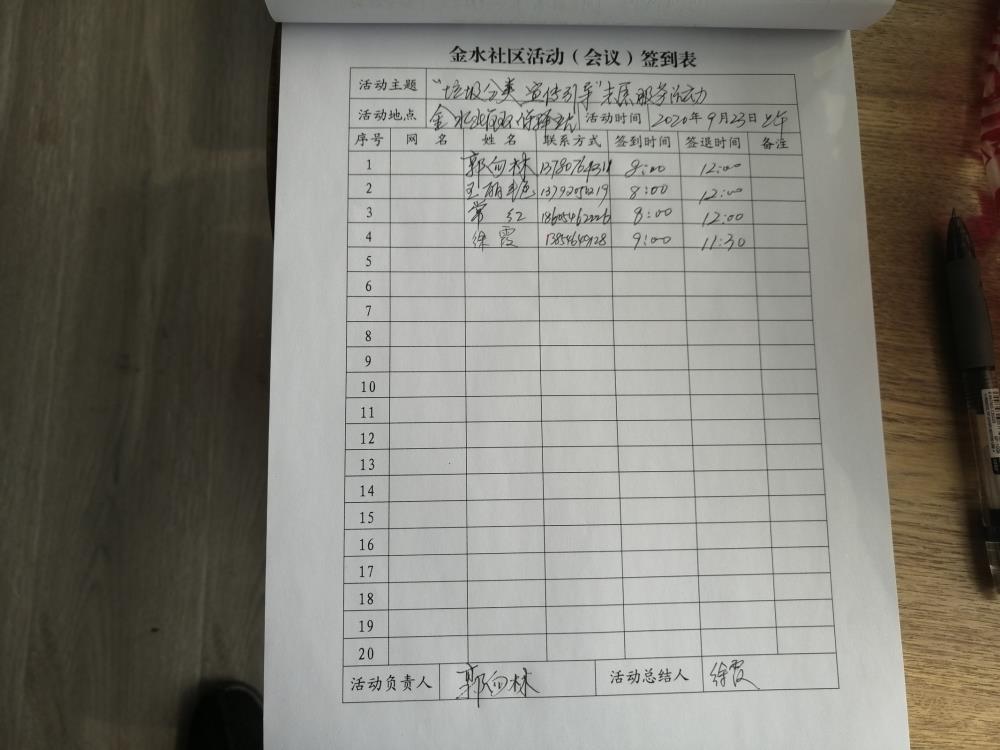 金水社区活动（会议）签到表
活动主题 “垃圾分类 宣传引导”志愿服务活动
活动地点 金水 活动时间 2020年9月23日上午
序号 网 名 姓 名 联系方式 签到时间 签退时间 备注
1 郭向林 8:00 12:00
2 8:00 12:00
3 常红 18605462226 8:00 12:00
4 徐霞 9:00 11:30
5
6
7
8
9
10
11
12
13
14
15
16
17
18
19
20
活动负责人 郭向林 活动总结人 徐霞